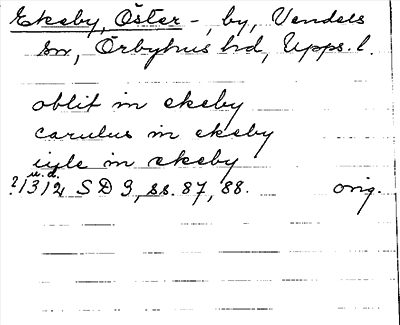 Ekeby, Öster-, by, Vendels
sn, Örbyhus hd, Upps. l.
oblif in ekeby
carulus in ekeby
in ekeby
u. d.
?/3 12 SD 3, ss. 87, 88. orig.